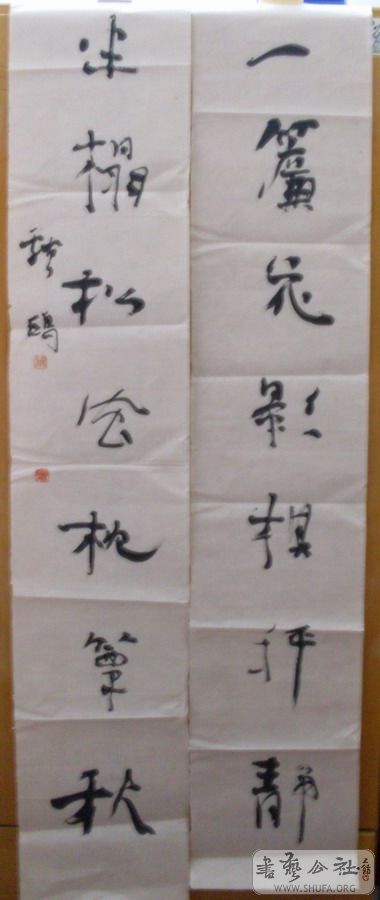 一簾花影棋枰靜
半榻松風枕簟秋
書藝公社
WWW.SHUFA.ORG